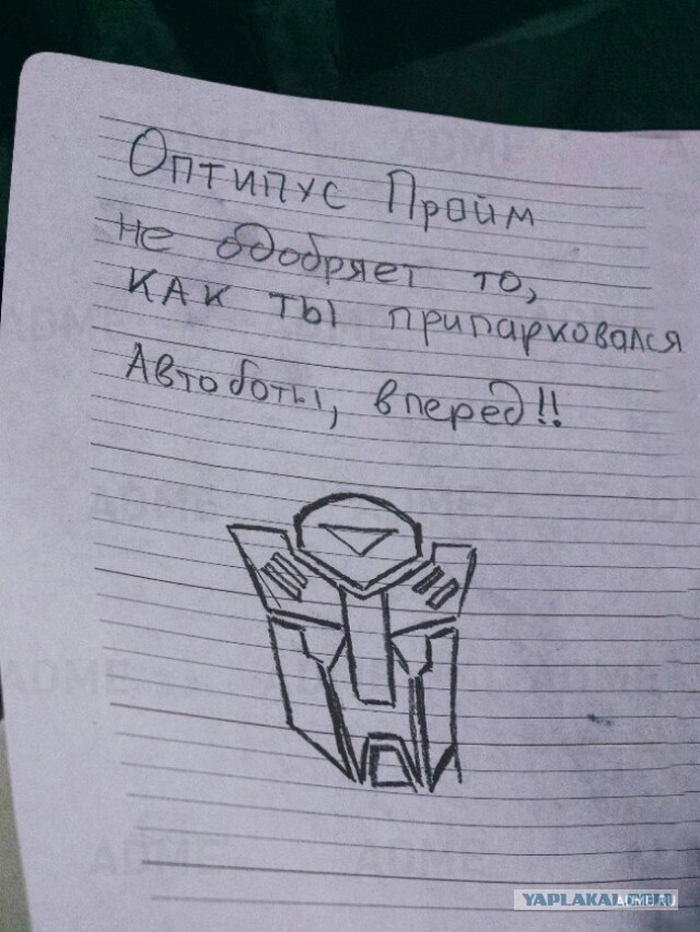 Оптипус Прайм
не одобряет то,
как ты припарковался
Автоботы, вперед!!
ADME
ADME
ADME
ADME
ADME
ADME
YAPLAKAL
ADME.RU